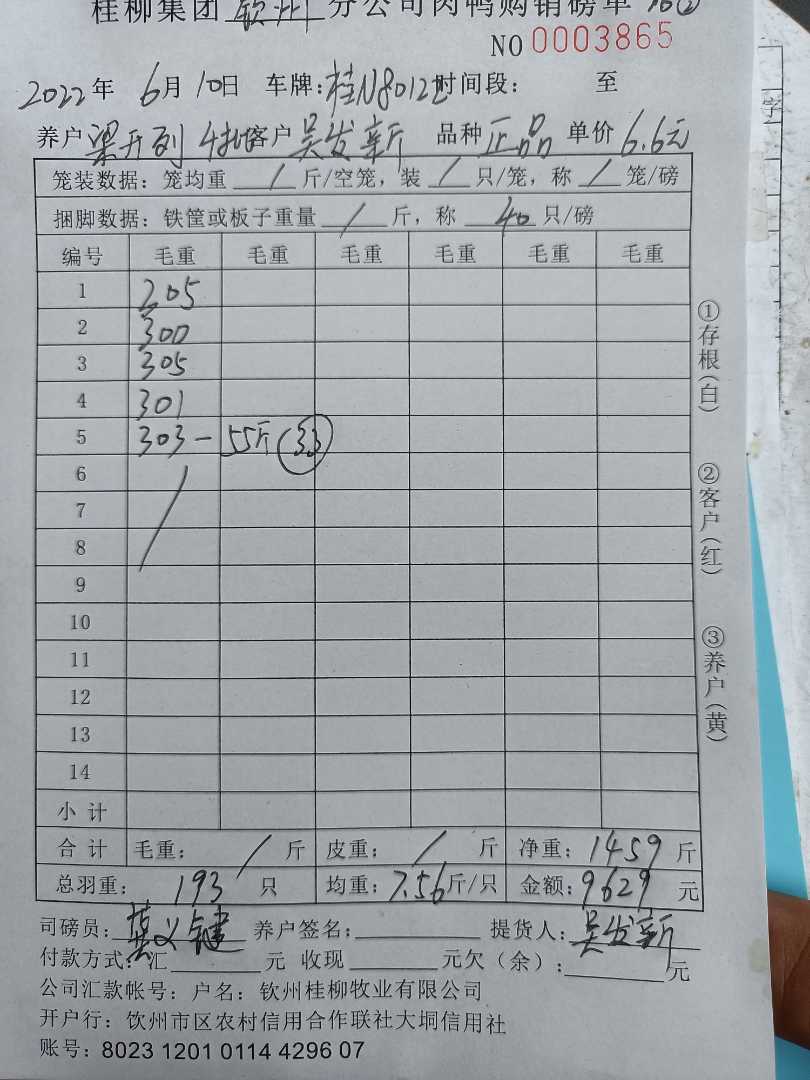 桂柳集团 钦州 分公司肉鸭购销磅单
NO 0003865
2022年 6月 10日 车牌: 桂N8012 时间段: 至
养户 梁开列 4批 客户 吴发新 品种 正品 单价 6.6元
笼装数据: 笼均重 / 斤/空笼, 装 / 只/笼, 称 / 笼/磅
捆脚数据: 铁筐或板子重量 / 斤, 称 40 只/磅
编号 毛重 毛重 毛重 毛重 毛重 毛重
1 205
2 300
3 305
4 301
5 303 - 55斤 (33)
6
7
8
9
10
11
12
13
14
小计
合计 毛重: / 斤 皮重: / 斤 净重: 1459 斤
总羽重: 193 只 均重: 7.56斤/只 金额: 9629 元
司磅员: 义键 养户签名: 提货人: 吴发新
付款方式: 汇 元 收现 元欠(余): 元
公司汇款帐号: 户名: 钦州桂柳牧业有限公司
开户行: 饮州市区农村信用合作联社大垌信用社
账号: 8023 1201 0114 4296 07
①存根(白)
②客户(红)
③养户(黄)
字